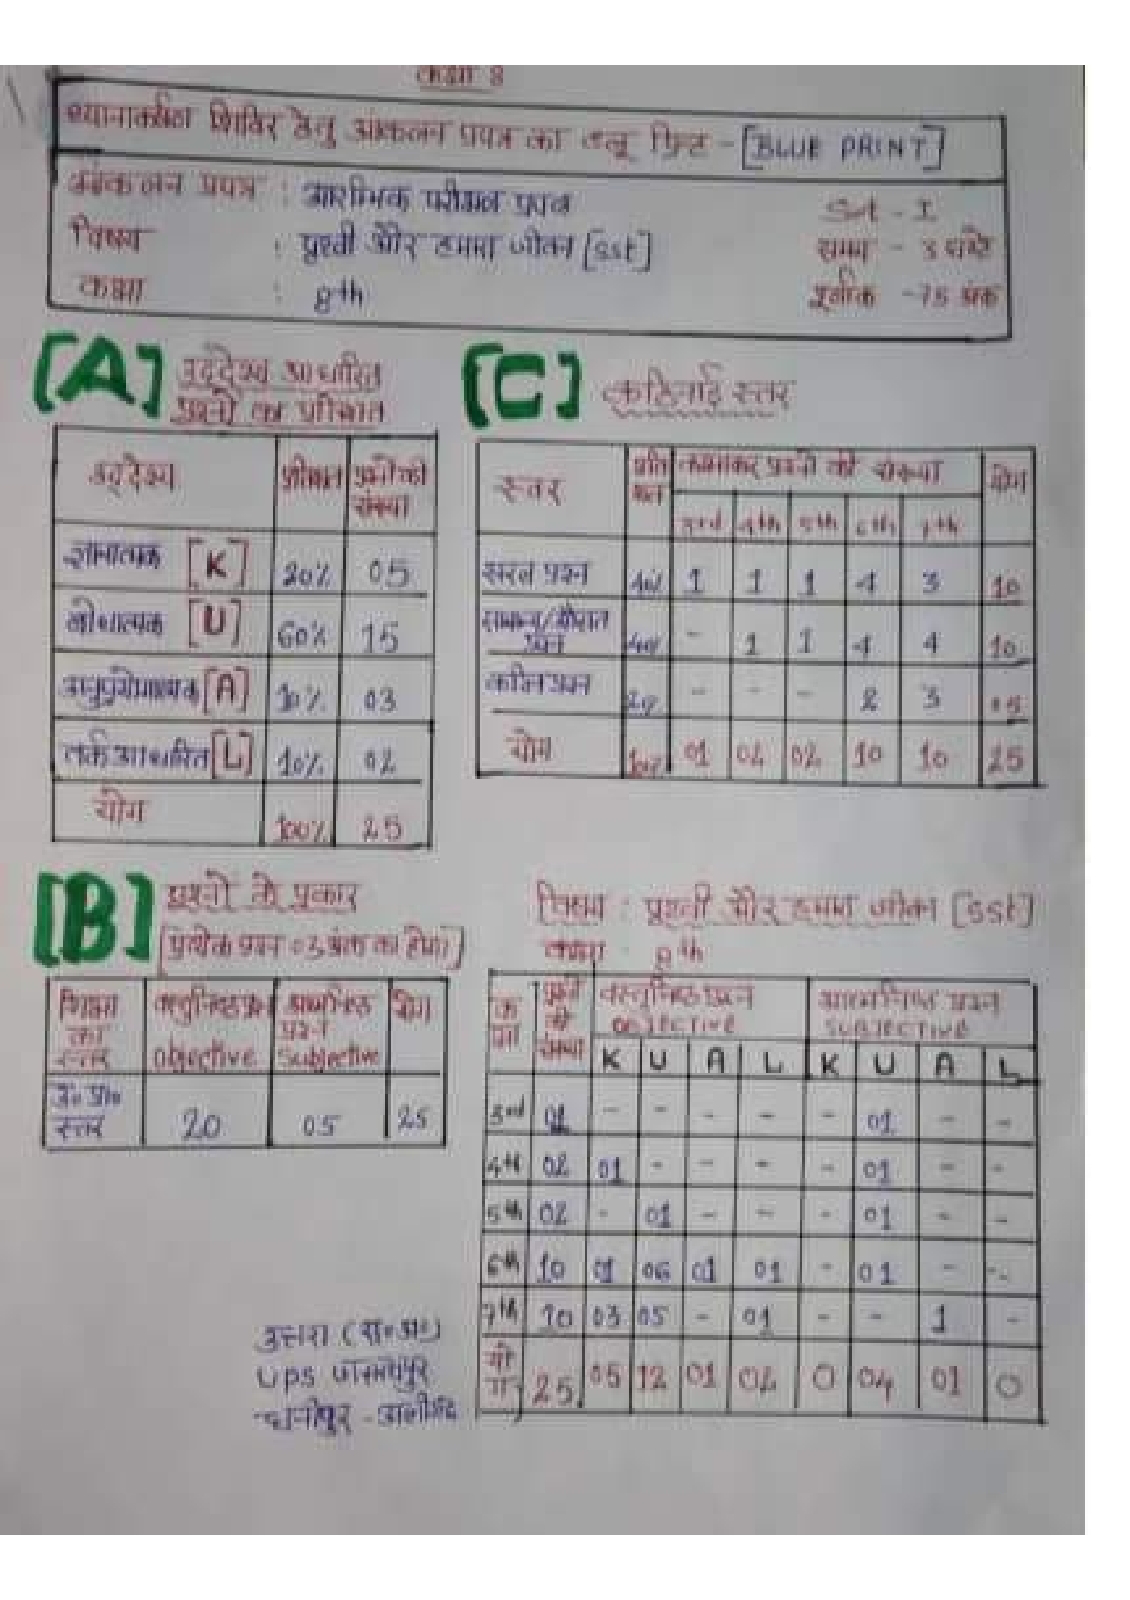 कक्षा 8
ध्यानाकर्षण शिविर हेतु आंकलन प्रपत्र का ब्लू प्रिंट - [BLUE PRINT]
आंकलन प्रपत्र : आरम्भिक परीक्षण प्रपत्र
Set - I
विषय : पृथ्वी और हमारा जीवन [sst]
समय - 3 घण्टे
कक्षा : 8th
पूर्णांक -75 अंक
[A] उद्देश्य आधारित
प्रश्नों का प्रतिशत
उद्देश्य प्रतिशत प्रश्नों की संख्या
ज्ञानात्मक [K] 20% 05
बोधात्मक [U] 60% 15
अनुप्रयोगात्मक [A] 10% 03
तर्क आधारित [L] 10% 02
योग 100% 25
[C] कठिनाई स्तर
स्तर प्रतिशत कक्षावार प्रश्नों की संख्या योग
3rd 4th 5th 6th 7th
सरल प्रश्न 40% 1 1 1 4 3 10
प्रश्न 40% - 1 1 4 4 10
कठिन प्रश्न 20% - - - 2 3 05
योग 100% 01 02 02 10 10 25
[B] प्रश्नों के प्रकार
[प्रत्येक प्रश्न 03 अंक का होगा]
शिक्षा का स्तर वस्तुनिष्ठ प्रश्न objective आत्मनिष्ठ प्रश्न Subjective योग
उ० प्रा० स्तर 20 05 25
विषय : पृथ्वी और हमारा जीवन [sst]
कक्षा : 8th
कक्षा प्रश्नों की संख्या वस्तुनिष्ठ प्रश्न OBJECTIVE आत्मनिष्ठ प्रश्न SUBJECTIVE
K U A L K U A L
3rd 01 - - - - - 01 - -
4th 02 01 - - - - 01 - -
5th 02 - 01 - - - 01 - -
6th 10 01 06 01 01 - 01 - -
7th 10 03 05 - 01 - - 1 -
योग 25 05 12 01 02 0 04 01 0
उत्तरा (स० अ०)
Ups